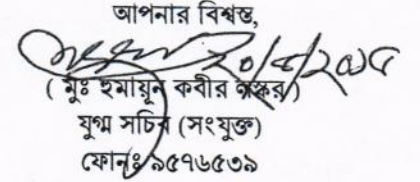 আপনার বিশ্বস্ত,
২০/৪/২০১৫
( মুঃ হুমায়ূন কবীর
যুগ্ম সচিব (সংযুক্ত)
ফোনঃ ৯৫৭৬৫৩৯